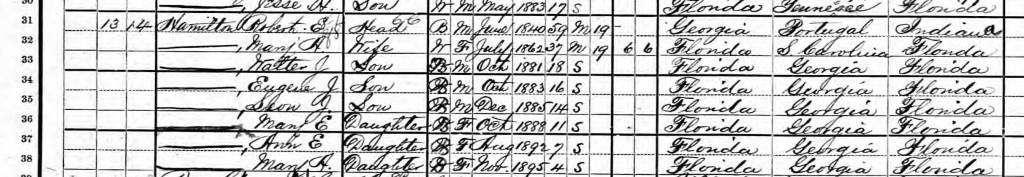 Jesse H. Son W M May 1883 17 S Florida Tennessee Florida
31 13 14 Hamilton Robert E. Head B M June 1840 59 M 19 Georgia Portugal Indiana
32 Mary A. Wife W F July 1862 37 M 19 6 6 Florida S Carolina Florida
33 Walter J Son B M Oct 1881 18 S Florida Georgia Florida
34 Eugene J Son B M Oct 1883 16 S Florida Georgia Florida
35 Son B M Dec 1885 14 S Florida Georgia Florida
36 Mary E Daughter B F Oct 1888 11 S Florida Georgia Florida
37 Ann E Daughter B F Aug 1892 7 S Florida Georgia Florida
38 Mary A. Daughter B F Nov. 1895 4 S Florida Georgia Florida